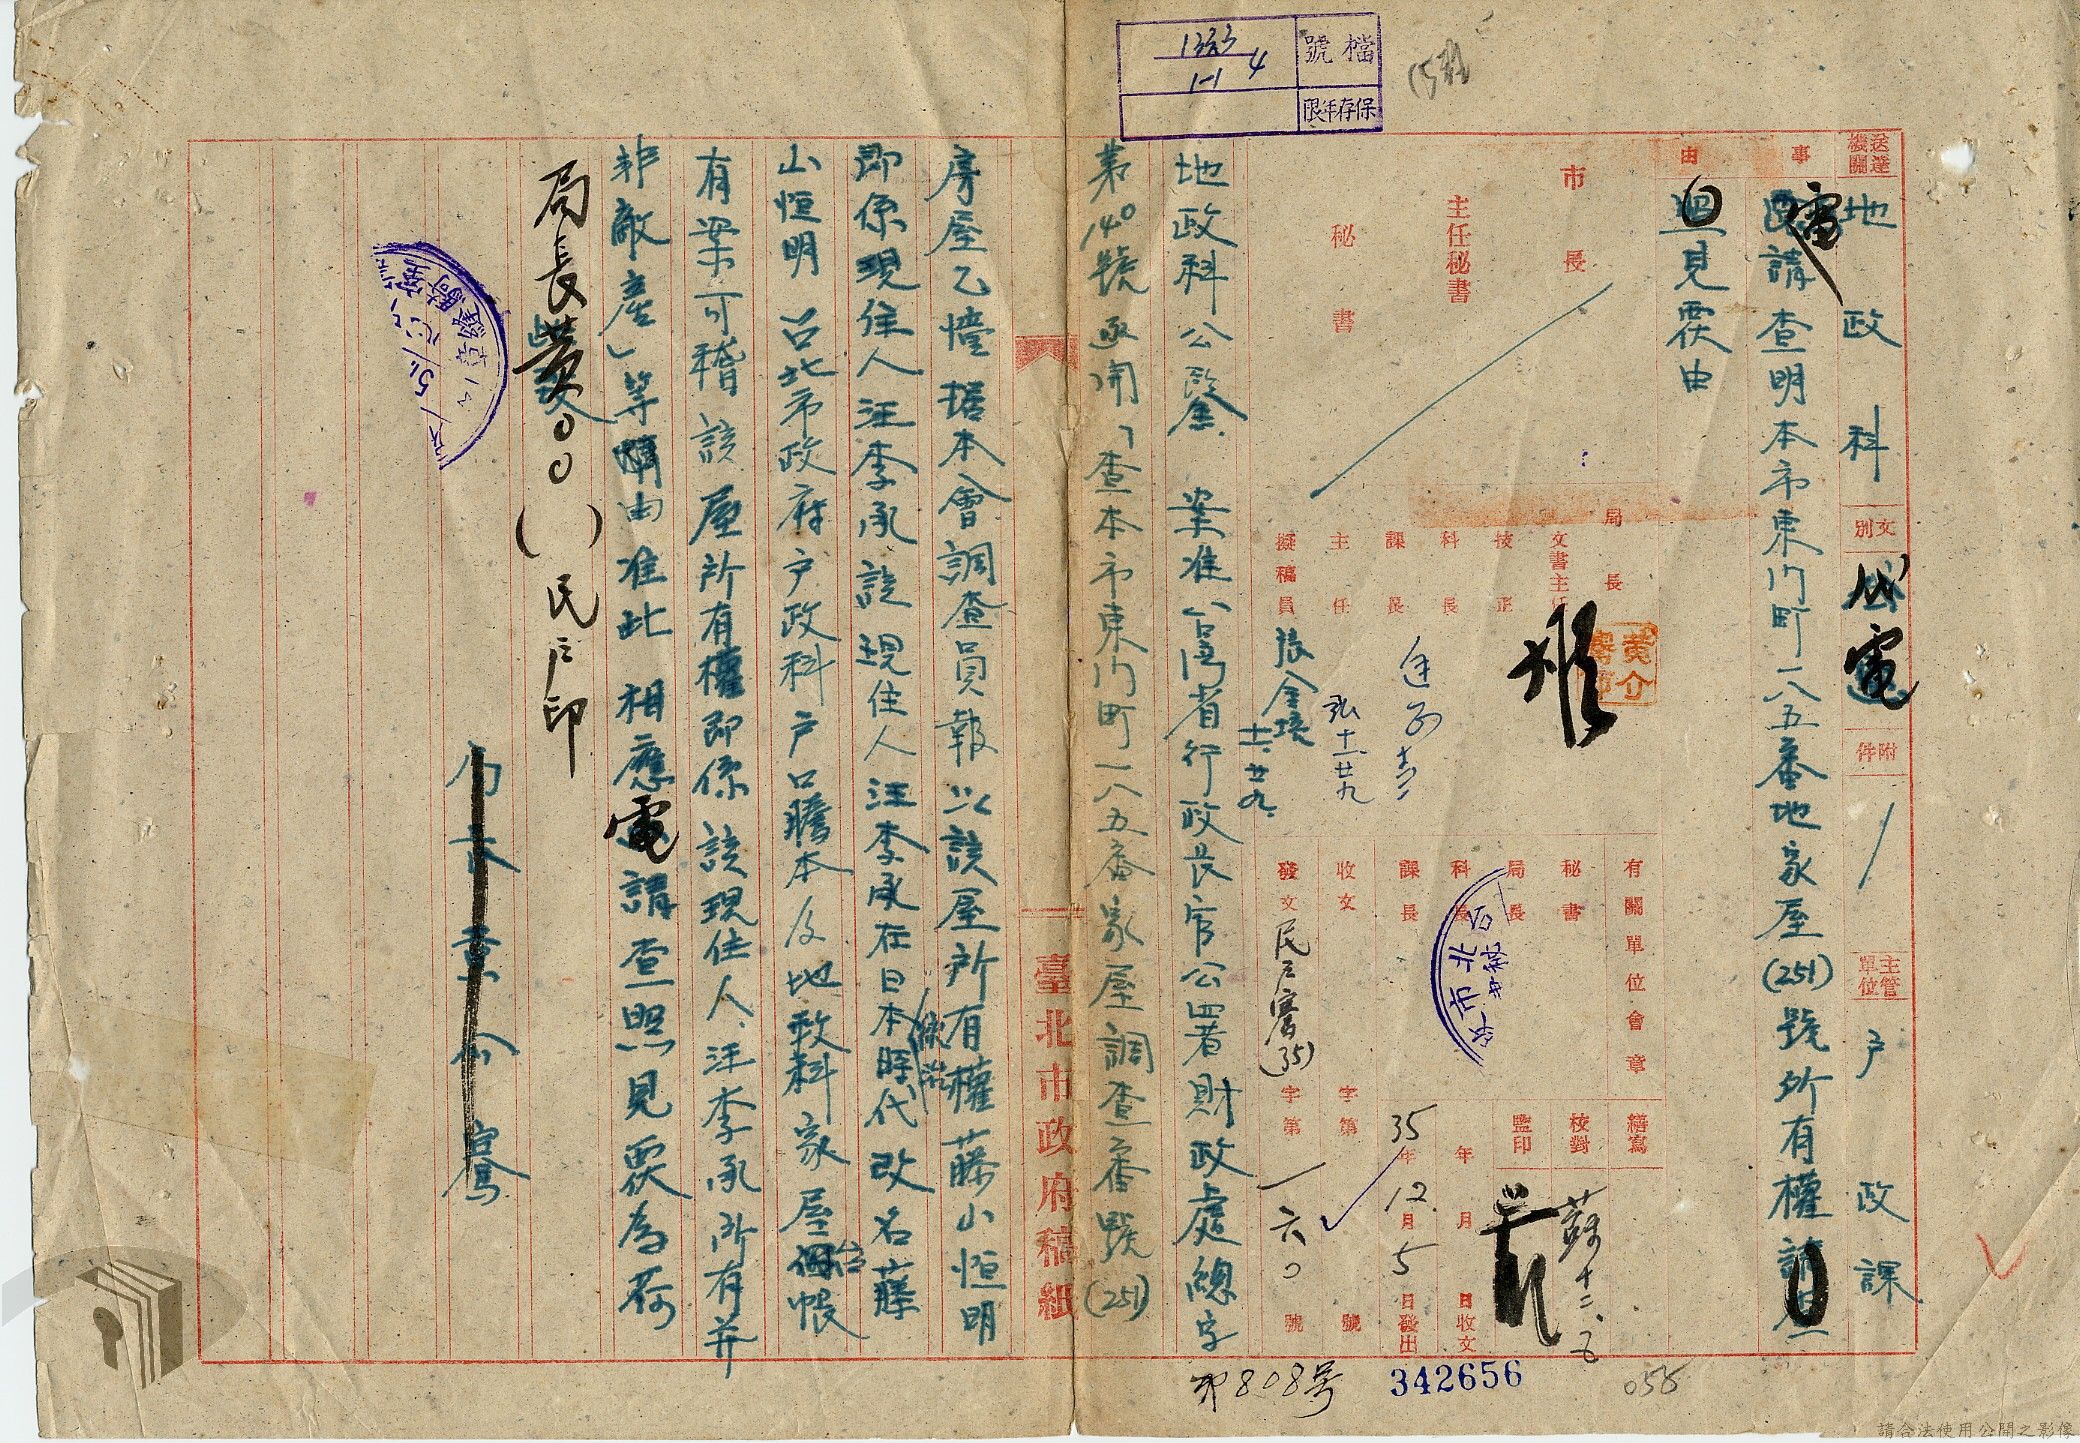 檔號
1333
1-1
4
保存年限
送達機關
地政科
文別
代電
附件
主管單位
戶政課
事由
電請查明本市東門町一八五番地家屋(251)號所有權
見覆由
市長
主任秘書
秘書
局長
文書主任
技正
科長
課長
主任
擬稿員
張金
十一、廿九
十一廿九
黃介騫
有關單位會章
秘書
局長
科長
課長
收文
字第
號
發文
民戶騫(35)字第一六〇號
繕寫
校對
監印
蘇十二、五
年月日收文
35年12月5日發出
地政科公鑒 案准台灣省行政長官公署財政處總字
第140號函開「查本市東門町一八五番家屋調查番號(251)
房屋乙幢據本會調查員報以該屋所有權藤山恒明
即係現住人汪李承該現住人汪李承在日本統治時代改名藤
山恒明 台北市政府戶政科戶口謄本及地政科家屋台帳
有案可稽該屋所有權即係該現住人汪李承所有并
非敵產」等由准此相應電請查照見覆為荷
局長黃〇〇( )民戶印
局長黃介騫
臺北市政府稿紙
第808号
342656
058
請合法使用公開之影像